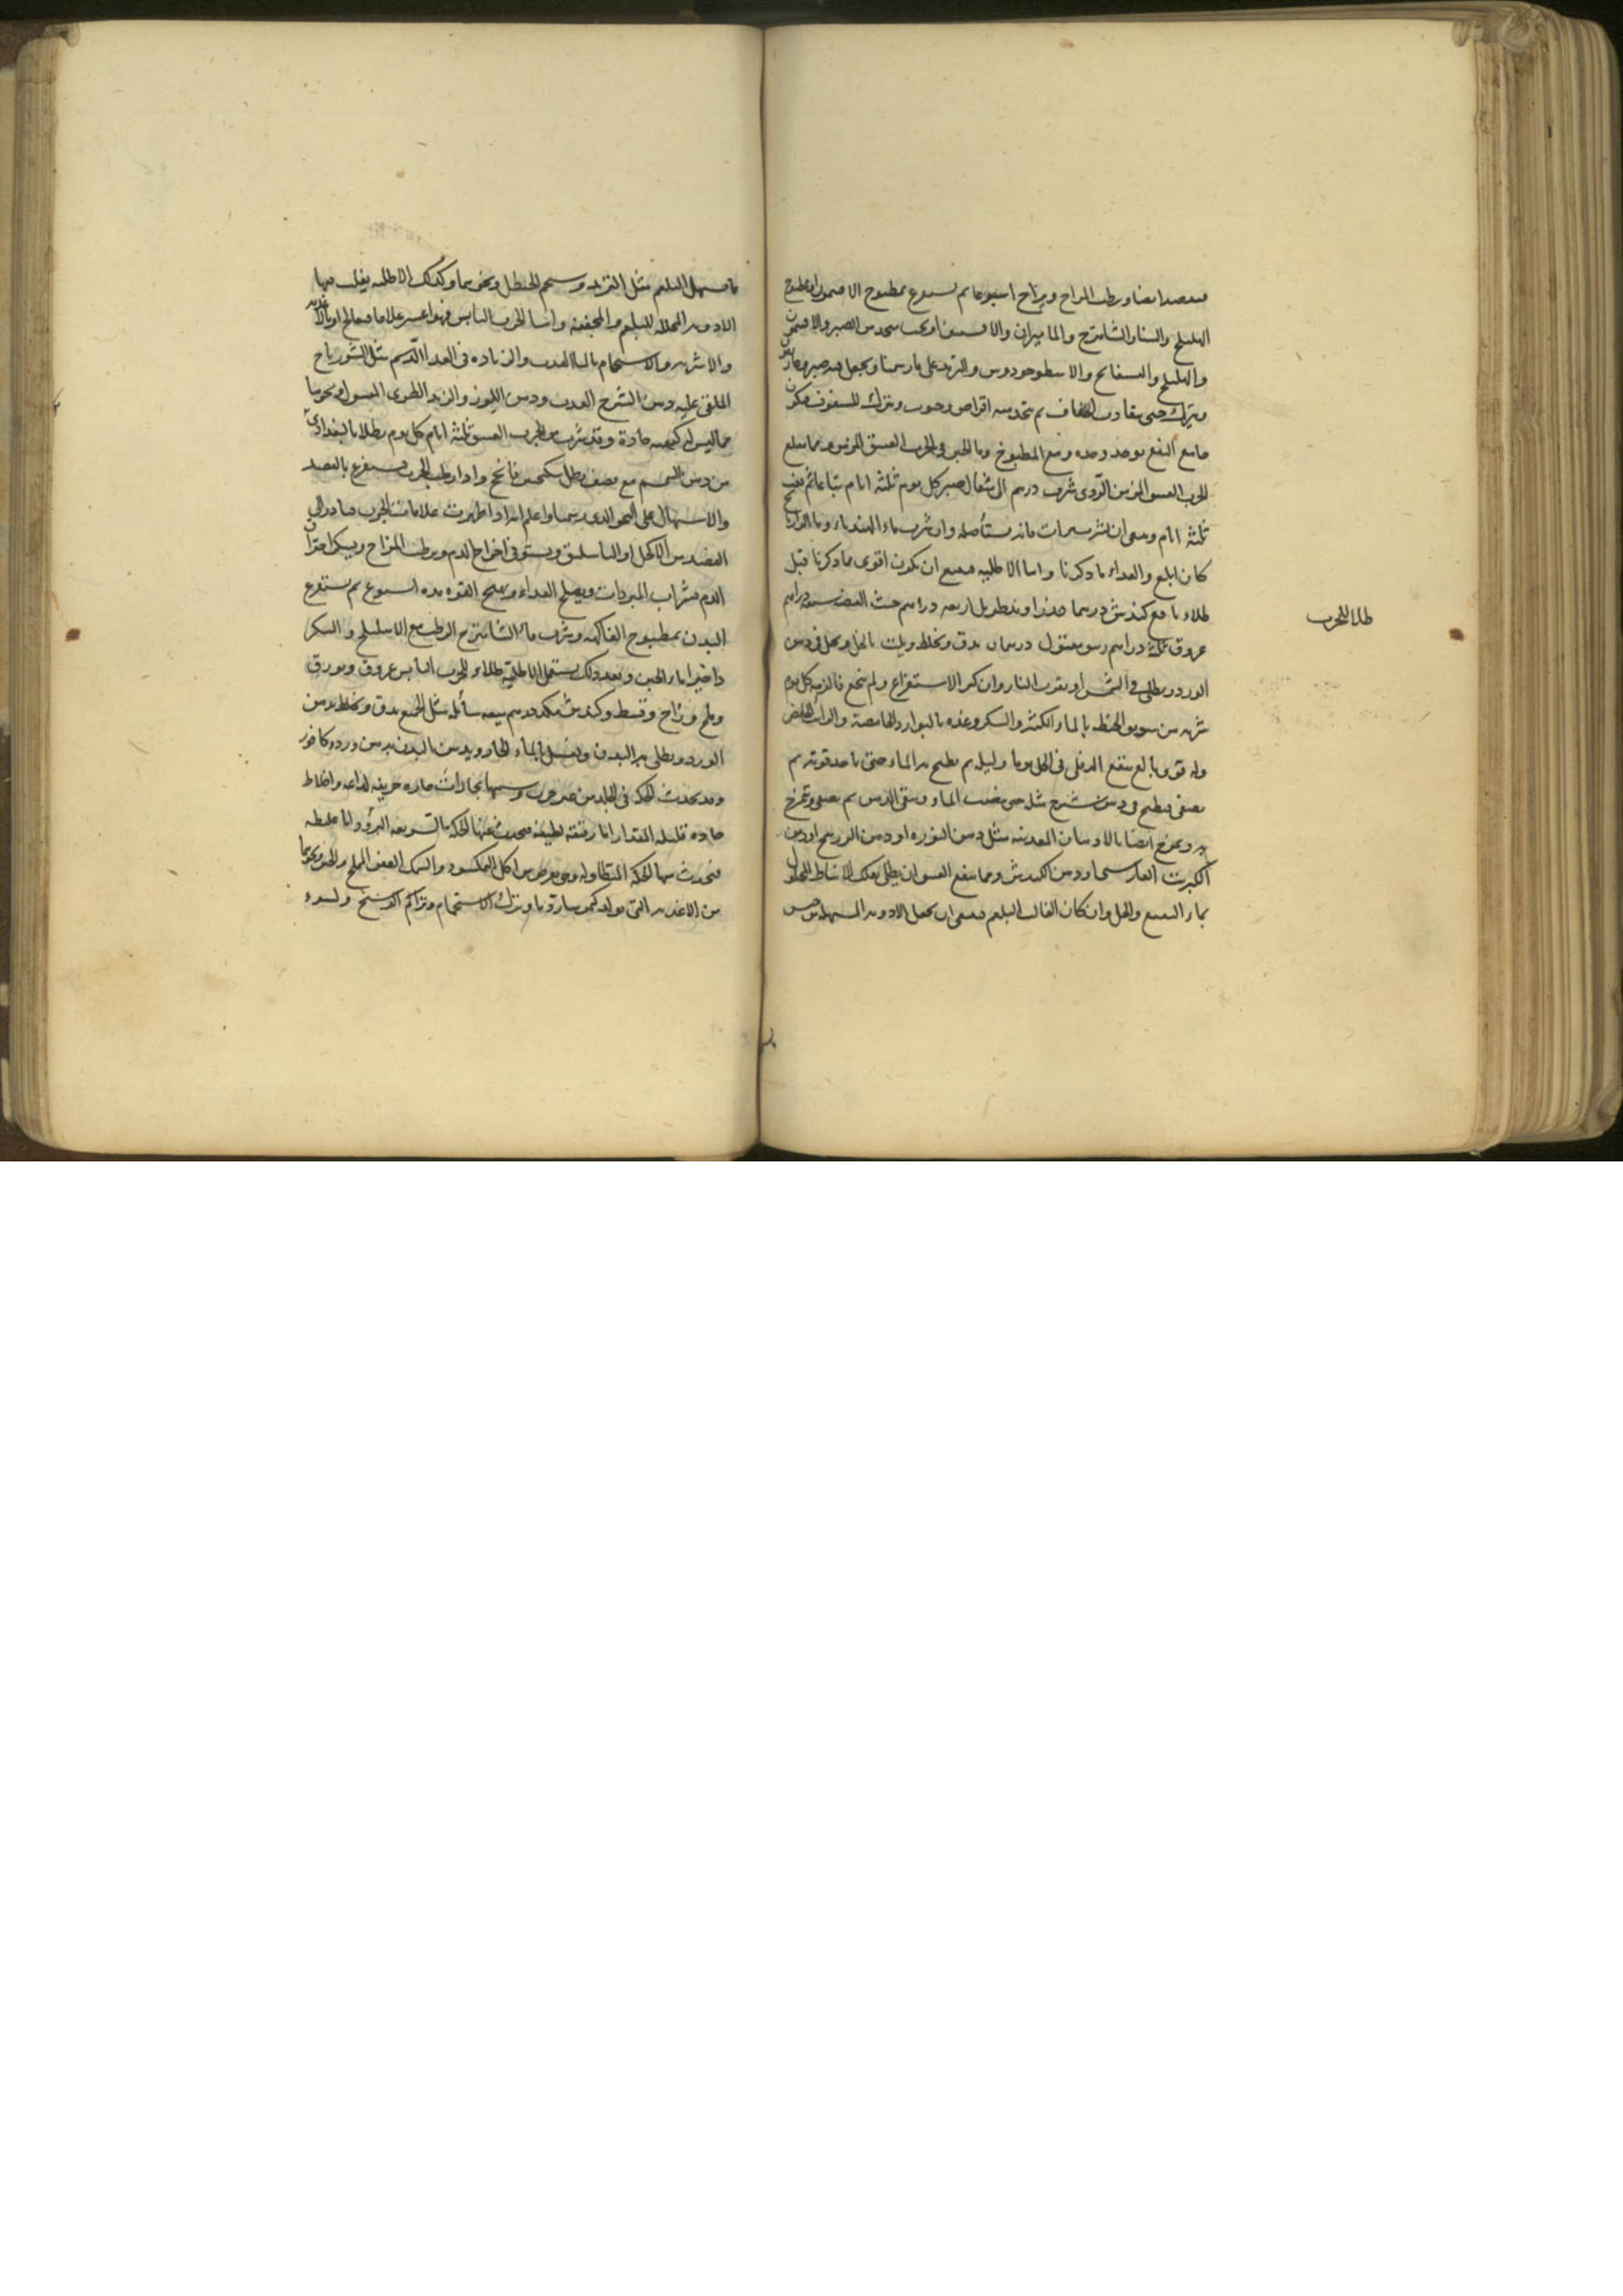 فيفصد ايضا ويرطب المزاج ويراح اسبوعا ثم يستفرغ بمطبوخ الافتيمون او مطبوخ
الهليلج والسنا والشاهترج والماميران والافسنتين او بحب متخذ من الصبر والافتيمون
والهليلج والبسفايج والاسطوخودوس والتربد على ما رسمنا ويجعل فيه صبر
ويترك حتى يقارب الجفاف ثم يتخذ منه اقراص وحبوب ويترك للسفوف فيكون
مامع النفع يوخذ وحده ومع المطبوخ وما الجبن في الجرب العتيق المزمن ومما ينفع
للجرب العتيق المزمن الردى شرب درهم الى مثقال صبر كل يوم ثلثة ايام تباعا ثم يغب
ثلثة ايام وينبغى ان شرب مرات فانه يستأصله وان شرب بماء الهندباء وما الرازيانج
كان ابلغ والغداء ما ذكرنا واما الاطلية فينبغي ان تكون اقوى مما ذكرنا قبل
طلاء نافع كندش درهما اربعة دراهم خبث الفضة سبعة دراهم
عروق ثلثة دراهم درهمان يدق ويخلط ويلت بالخل ودهن
الورد ويطلى في الشمس او بقرب النار وان كثر الاستفراغ ولم ينجع فالزمه كل يوم
شربة من سويق الحنطة بالماء الكثير والسكر وغذه بالبوارد الحامضة والرائب الحامض
وله قوي بالغ ينقع الدفلى في الخل يوما وليلة ثم يطبخ بالماء حتى ياخذ قوته ثم
يصفى ويطبخ في دهن شيرج مثله حتى ينضب الماء ويبقى الدهن ثم يصفى ويمرخ
به ويمرخ ايضا بالادهان المعدنية مثل دهن النوره او دهن الزرنيخ او دهن
الكبريت او دهن الكندش ومما ينفع العتيق ان يطلى
بماء النعنع والخل وان كان الغالب البلغم فينبغي ان يجعل الادوية المسهلة من جنس
طلا للجرب
ما يسهل البلغم مثل التربد وشحم الحنظل ونحوهما وكذلك الاطلية يغلب فيها
الادوية المحللة للبلغم والمجففة واما الجرب اليابس فهو اعسر علاجا فيعالج اولا بالاغذية
والاشربة والاستحمام بالماء العذب والزياده في الغداء الدسم مثل الشورباج
الملقى عليه دهن الشيرج العذب ودهن اللوز والزبد الطرى ونحوها
مما ليس له كيفية حادة وقد يشرب من الجرب العتيق ثلثة ايام كل يوم رطلا بالبغدادى
من دهن السمسم مع نصف رطل سكنجبين فانجح واذا رطب الجرب يستفرغ بالفصد
والاسهال على النحو الذى رسمنا واعلم انه اذا ظهرت علامات الجرب فبادر الى
الفصد من الاكحل او الباسليق ويستوفى اخراج الدم ويرطب المزاج ويسكن احتراق
الدم بشراب المبردات ويصلح الغداء ويربح القوة مدة اسبوع ثم يستفرغ
البدن بمطبوخ الفاكهة وشرب ماء الشاهترج الرطب مع الاهليلج والسكر
واخيرا ماء الجبن وبعد ذلك يستعمل الاطلية طلاء للجرب اليابس عروق وبورق
وملح وزاج وقسط وكندش من كل درهم ميعه سائله مثل الجميع يدق ويخلط بدهن
الورد ويطلى به البدن ويغسل بالماء الحار ويدهن البدن بدهن ورد وكافور
وقد يحدث الحكة في الجلد من غير جرب وسببها بخارات حارة حريفة لذاعة واخلاط
حادة قليلة المقدار اما رقيقة لطيفة فيحدث عنها الحكة السريعة البرؤ واما غليظة
فيحدث منها الحكة المتطاولة وهى تعرض من اكل النمكسود والسمك العفن المملح والجبن ونحوها
من الاغذية التى يولد كيموسا رديا وترك الاستحمام وتراكم الوسخ ولسوء